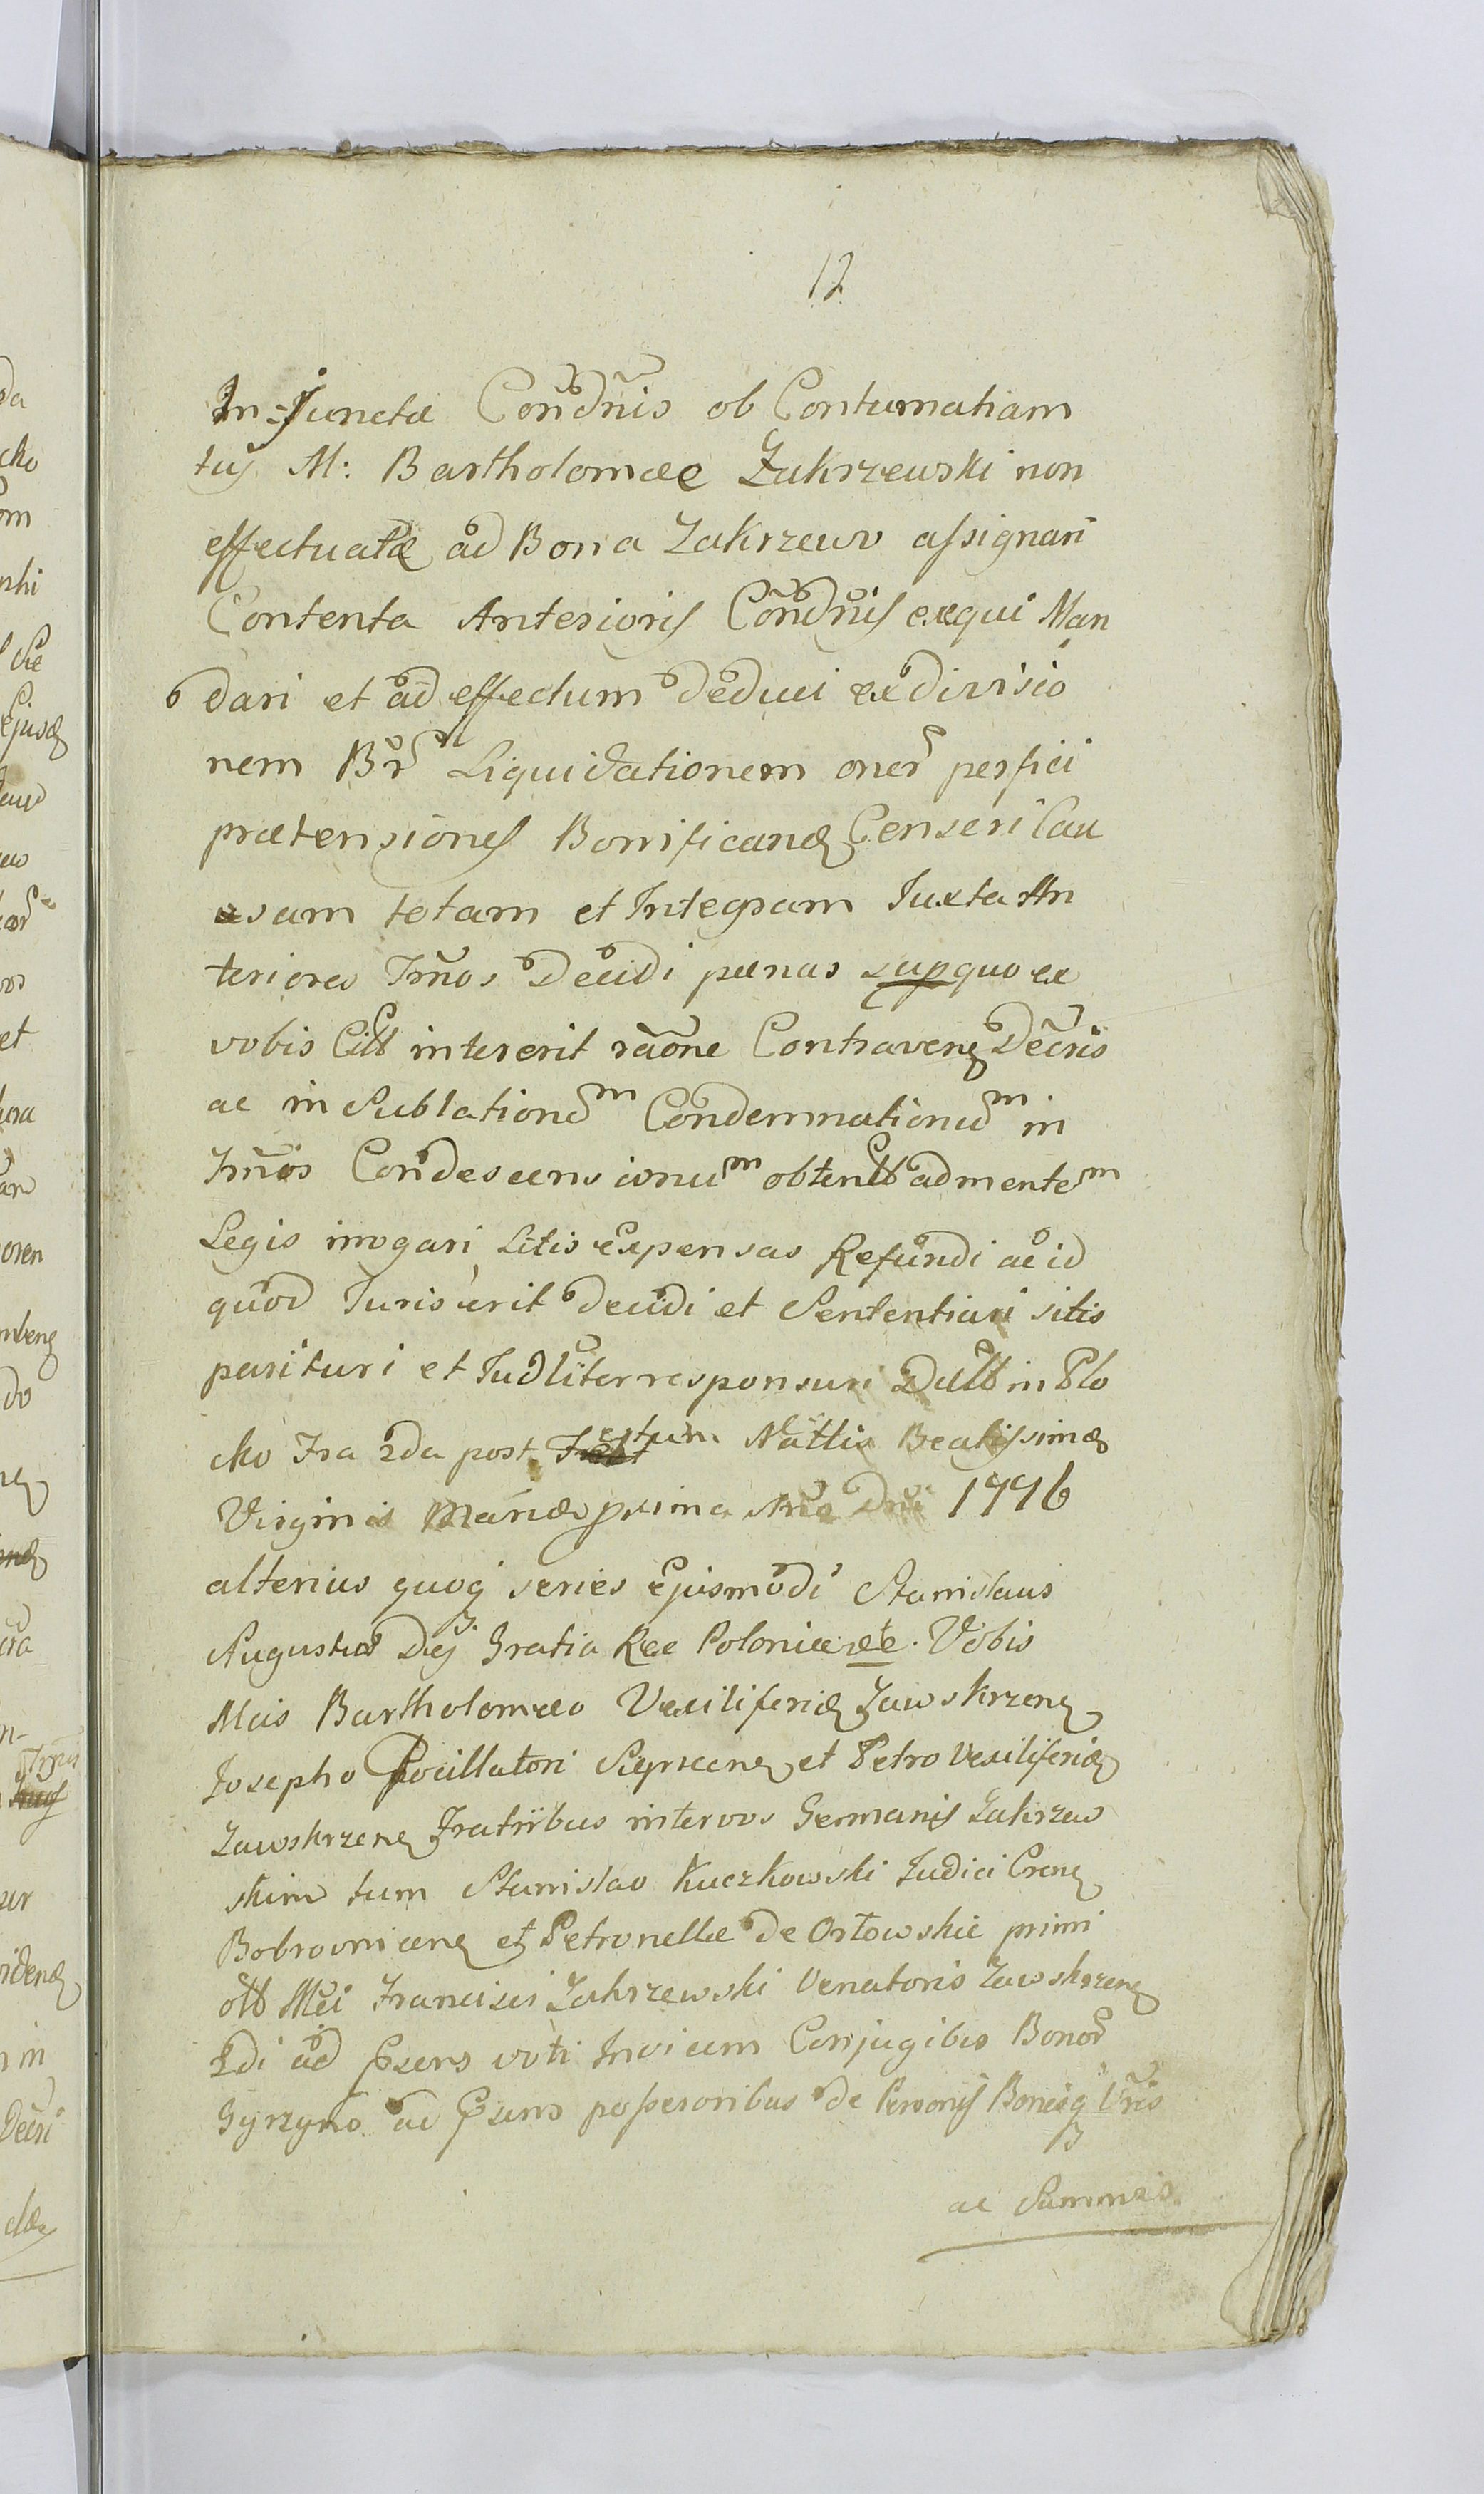 12
In-Junctæ Condnis ob Contumatiam
tuj M: Bartholomæe Zakrzewski non
effectuatæ ad Bona Zakrzewo assignari
Contenta Anterioris Condnis exequi Man
dari et ad effectum deduci ex divisio
nem Br Liquidationem oner perfici
prætensiones Bonificand Censeri Cau
usam totam et Integram Juxta An
teriores Trnos Decidi pænas sup quo ex
vobis Citt intererit raone Contraven Decris
ac in Sublationem Condemnationum in
Trnos Condescensionum obtentt ad mentem
Legis irrogari Litis Expensas Refundi ac id
quod Juris erit decidi et Sententiari sitis
parituri et Judliter responsuri Datt in Plo
cko Fra 2da post Festum Nattis Beatissimæ
Virginis Mariæ prima Ano Dni 1776
alterius quoq series Ejusmodi Stanislaus
Augustus Dej Gratia Rex Poloniæ etc. Vobis
Mcis Bartholomæo Vexilliferid Zawskrzen
Josepho Pocillatori Sieprcen et Petro Vexiliferid
Zawskrzen Fratribus inter vos Germanis Zakrzew
skim tum Stanislao Kuczkowski Judici Cren
Bobrovnicen et Petronellæ de Orłowskie primi
ott Mci Francisci Zakrzewski Venatoris Zawskrzen
2di ad Psens voti Invicem Conjugibus Bonor
Gyrzyno ac Psens possesoribus de Personis Bonisq Vris
ac Summis